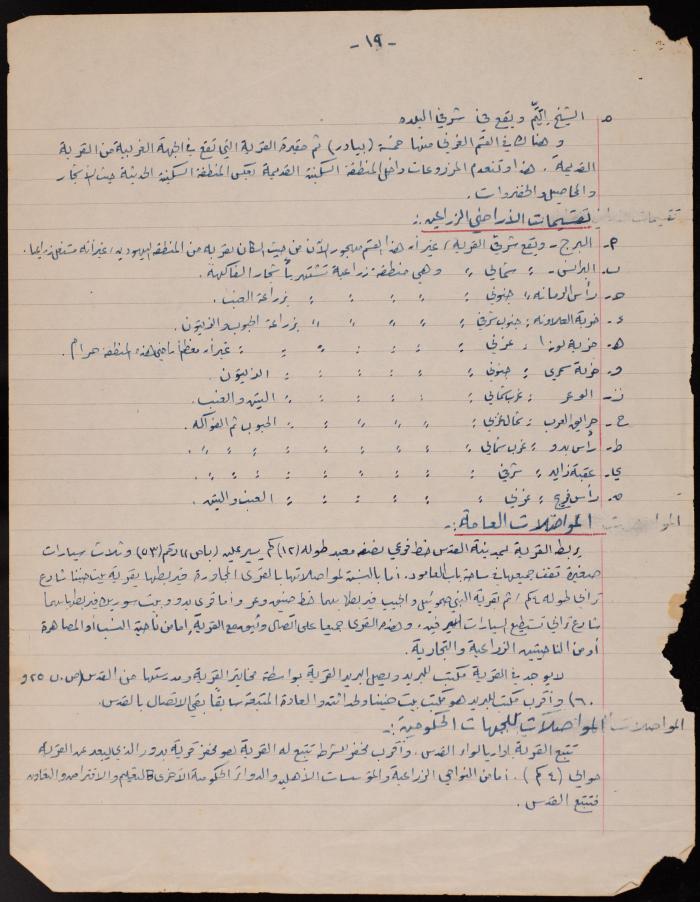 - ١٩ -
٥ الشيخ يتيّم ويقع في شرقي البلده
و هناك في القسم الغربي منها خمسة (بيادر) ثم مقبرة القرية التي تقع في الجهة الغربية من القرية
القديمة. هذا وتنعدم المزروعات داخل المنطقة السكنية القديمة بعكس المنطقة السكنية الحديثة حيث الأشجار
والمحاصيل والخضروات.
تقسيمات الأراضي الزراعية :-
البرج - ويقع شرقي القرية، غير أن هذا القسم مهجور الآن من حيث السكان لقربه من المنطقة اليهودية، غير أنه مستغل زراعيا.
ب- البرانس - " شمالي " وهي منطقة زراعية تشتهر بأشجار الفاكهة.
رأس الرمانه " جنوبي " " " " " بزراعة العنب.
خربة العلاونه " جنوب شرقي " " " " " بزراعة الحبوب والزيتون.
هـ- خربة لوزا " غربي " " " " " غير أن معظم أراضي هذه المنطقة حرام.
و- خربة سمري " جنوبي " " " " " الزيتون.
ز- الوعر " غرب شمالي " " " " " التين والعنب.
ح- حرايق العرب " شمال غربي " " " " " الحبوب ثم الفواكه.
ط- رأس بدو " غرب شمالي " " " " " " " ".
ي- عقبة زايد " شرقي " " " " " " " ".
رأس فرج " غربي " " " " " العنب والتين.
المواصلات العامة :-
يربط القرية بمدينة القدس خط فرعي نصف معبد طوله (١٢) كم يسير عليه (باص) رقم (٥٣) وثلاث سيارات
صغيرة تقف جميعها في ساحة باب العامود. أما بالنسبة لمواصلاتها بالقرى المجاورة فيربطها بقرية بيت حنينا شارع
ترابي طوله ٤ كم، ثم لقرية النبي صموئيل والجيب فيربطها بهما خط ضيق وعر وأما قرى بدو وبيت سوريك فيربطها بهما
شارع ترابي تستطيع السيارات السير فيه. وهذه القرى جميعا على اتصال وثيق مع القرية، إما من ناحية النسب أو المصاهرة
أو من الناحيتين الزراعية والتجارية.
لا يوجد في القرية مكتب للبريد ويصل البريد القرية بواسطة مخاتير القرية ومدرستها من القدس (ص. ب ٢٥ و
٦٠) وأقرب مكتب للبريد هو مكتب بيت حنينا ولحداثته والعادة المتبعة سابقاً بقي الاتصال بالقدس.
المواصلات للجهات الحكومية :-
تتبع القرية إداريا لواء القدس، وأقرب مخفر للشرطة تتبع له القرية هو مخفر قرية بدو الذي يبعد عن القرية
حوالي (٤ كم). أما من النواحي الزراعية والمؤسسات الأهلية والدوائر الحكومية الأخرى كالتعليم والاقتراض والتعاون
فتتبع القدس.